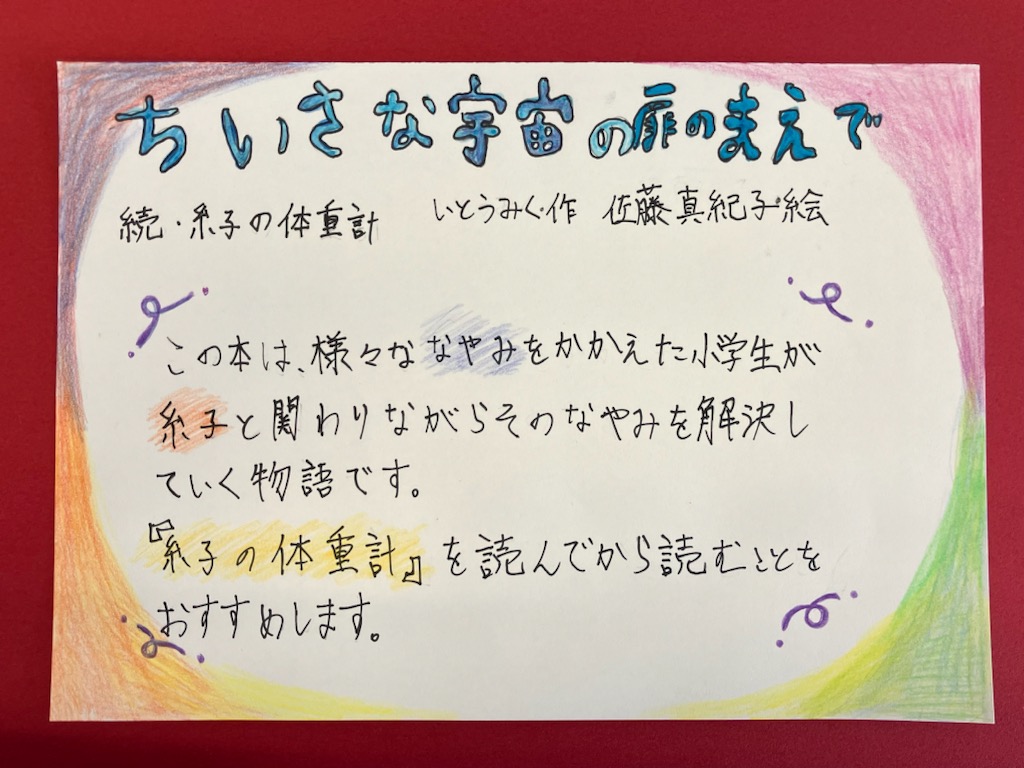 ちいさな宇宙の扉のまえで
続・糸子の体重計 いとうみく・作 佐藤真紀子・絵
この本は、様々ななやみをかかえた小学生が
糸子と関わりながらそのなやみを解決し
ていく物語です。
『糸子の体重計』を読んでから読むことを
おすすめします。